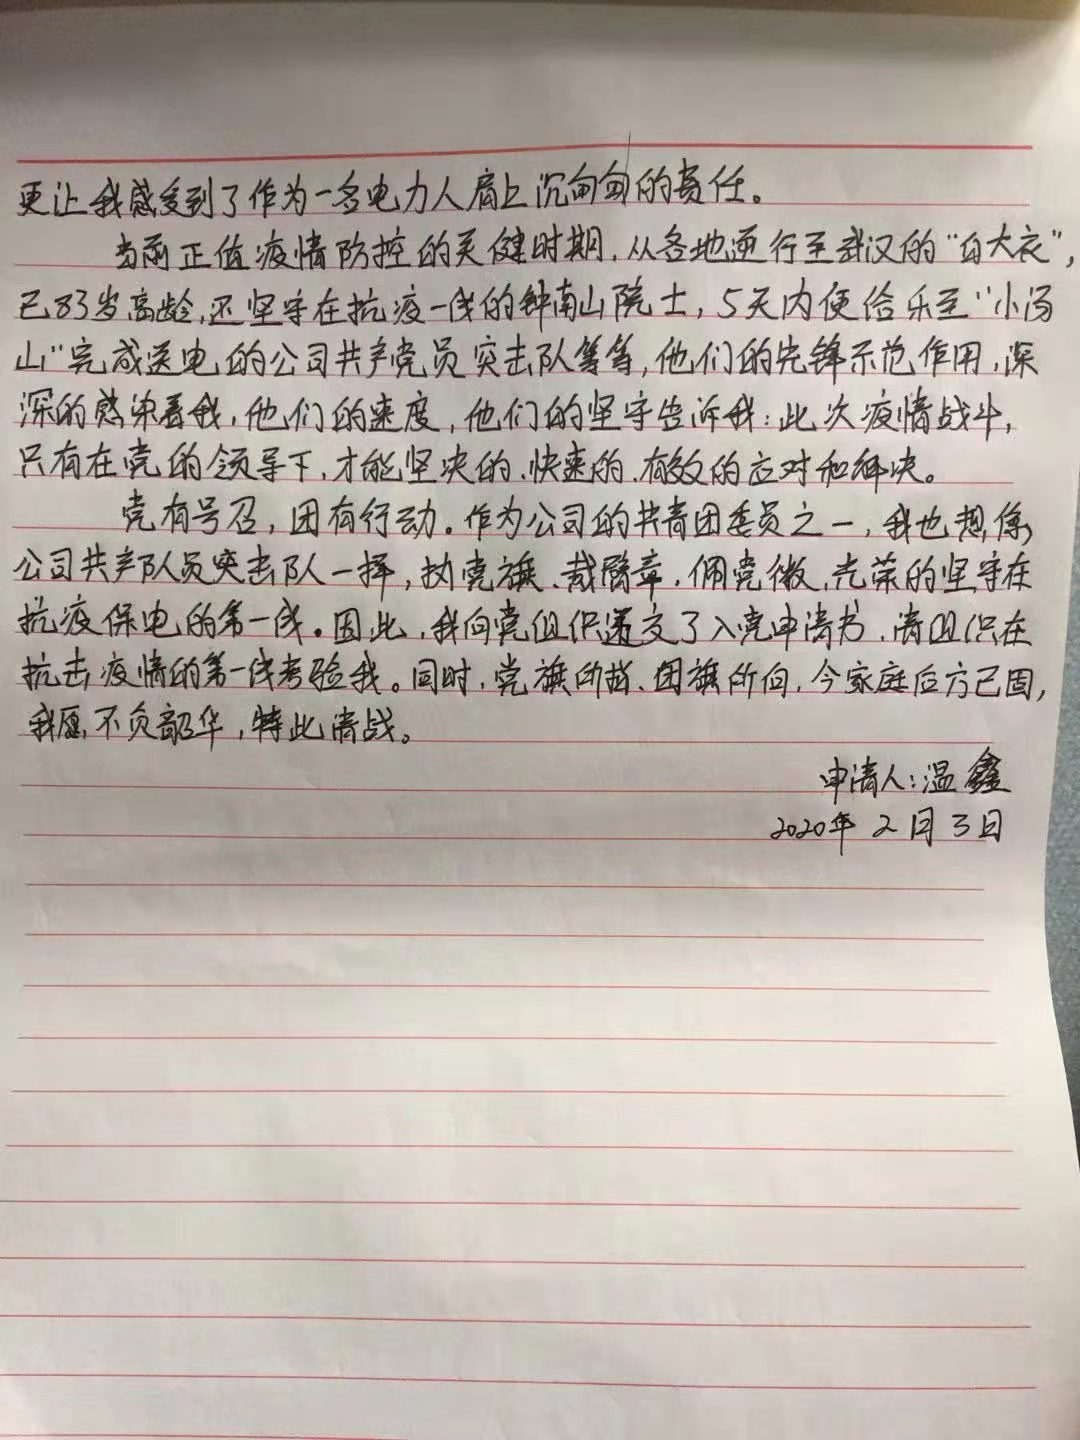 更让我感受到了作为一名电力人肩上沉甸甸的责任。
当前正值疫情防控的关健时期,从各地逆行至武汉的“白大衣”,
已83岁高龄,还坚守在抗疫一线的钟南山院士,5天内便给乐至“小汤
山”完成送电的公司共产党员突击队等等,他们的先锋示范作用,深
深的感染着我,他们的速度,他们的坚守告诉我:此次疫情战斗,
只有在党的领导下,才能坚决的、快速的、有效的应对和解决。
党有号召,团有行动。作为公司的共青团委员之一,我也想像
公司共产队员突击队一样,执党旗、戴臂章、佩党徽,光荣的坚守在
抗疫保电的第一线。因此,我向党组织递交了入党申请书,请组织在
抗击疫情的第一线考验我。同时,党旗所指、团旗所向,今家庭后方已固,
我愿不负韶华,特此请战。
申请人:温鑫
2020年2月3日